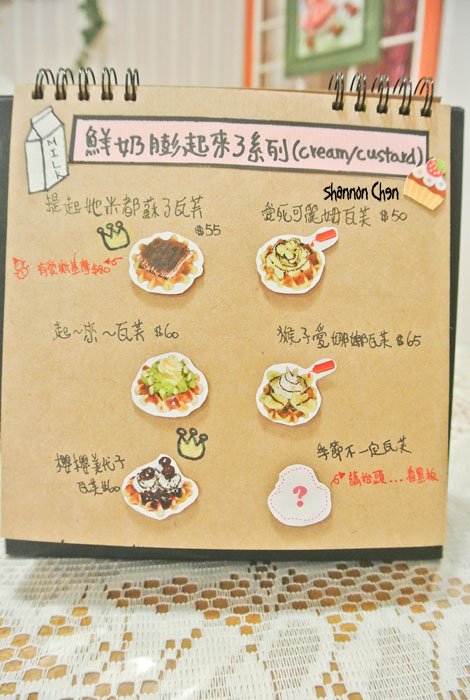 MILK
鮮奶膨起來了系列(cream/custard)
Shannon Chen
提起她米都蘇了瓦芙
$55
愛死可麗姆瓦芙 $50
起~來~瓦芙 $60
猴子愛娜娜瓦芙 $65
櫻櫻美代子
瓦芙$60
季節不一定瓦芙
?
請抬頭...看黑板